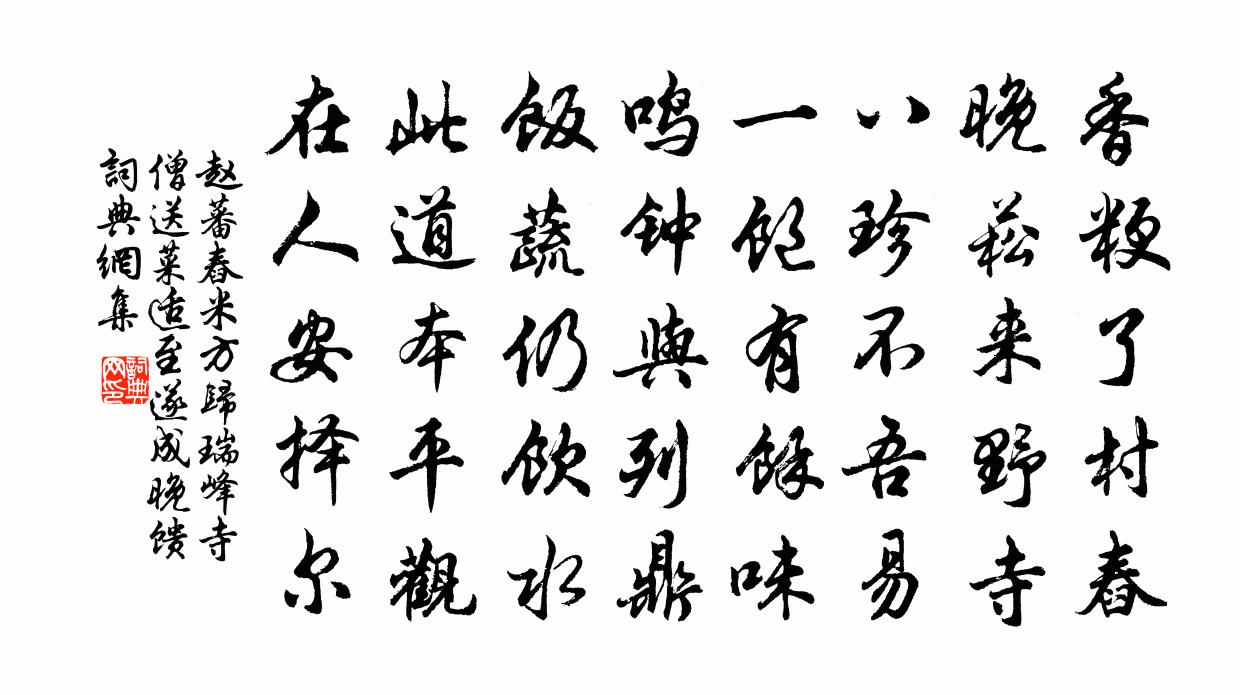 香粳了村舂
晚菘来野寺
八珍不吾易
一饱有馀味
鸣钟與列鼎
飯蔬仍饮水
此道本平觀
在人安择尔
赵蕃舂米方歸瑞峰寺
僧送菜适至遂成晚馈
詞典網集
詞典网印